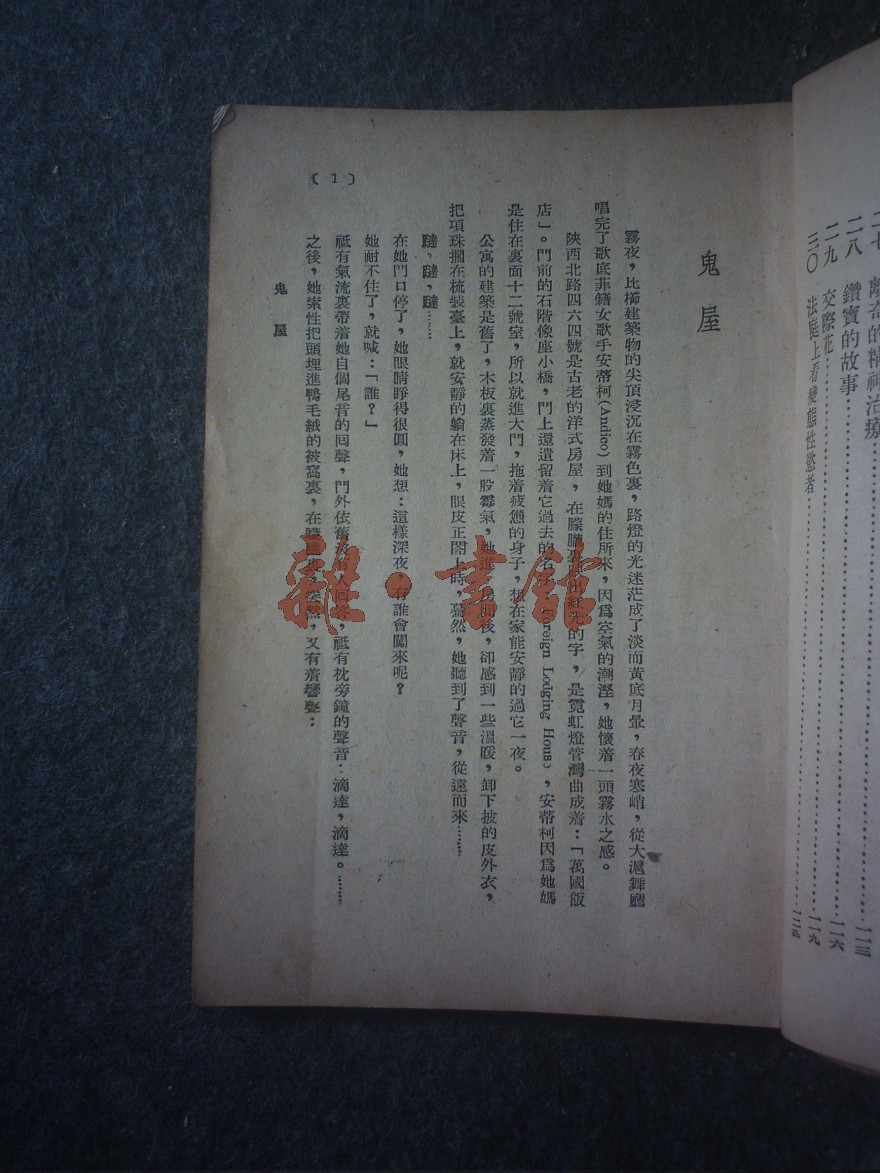 二七 摩奇的精神治療……一一三
二八 鑽寶的故事……一一六
二九 交際花……一一九
三〇 法庭上看變態性慾者……一二四
鬼屋
霧夜，比櫛建築物的尖頂浸沉在霧色裏，路燈的光迷茫成了淡而黃底月暈，春夜寒峭，從大滬舞廳
唱完了歌底菲籍女歌手安蒂柯(Andico)到她媽的住所來，因爲空氣的潮溼，她懷着一頭霧水之感。
陝西北路四六四號是古老的洋式房屋，在朦朧裏 紅光的字，是霓虹燈管灣曲成着：「萬國飯
店」。門前的石階像座小橋，門上還遺留着它過去的名 Foreign Lodging House，安蒂柯因爲她媽
是住在裏面十二號室，所以就進大門，拖着疲憊的身子，想在家能安靜的過它一夜。
公寓的建築是舊了，木板裏蒸發着一股霉氣，她進 房間後，卻感到一些溫暖，卸下披的皮外衣，
把項珠擱在梳裝臺上，就安靜的躺在床上，眼皮正閤上時，驀然，她聽到了聲音，從遠而來……
躂，躂，躂……
在她門口停了，她眼睛睜得很圓，她想：這樣深夜，有誰會闖來呢？
她耐不住了，就喊：「誰？」
祗有氣流裏帶着她自個尾音的回聲，門外依舊沒有人回答，祗有枕旁鐘的聲音：滴達，滴達。……
之後，她索性把頭埋進鴨毛絨的被窩裏，在朦朧 突然，又有着響聲：
鬼屋
〔1〕
雜·書館